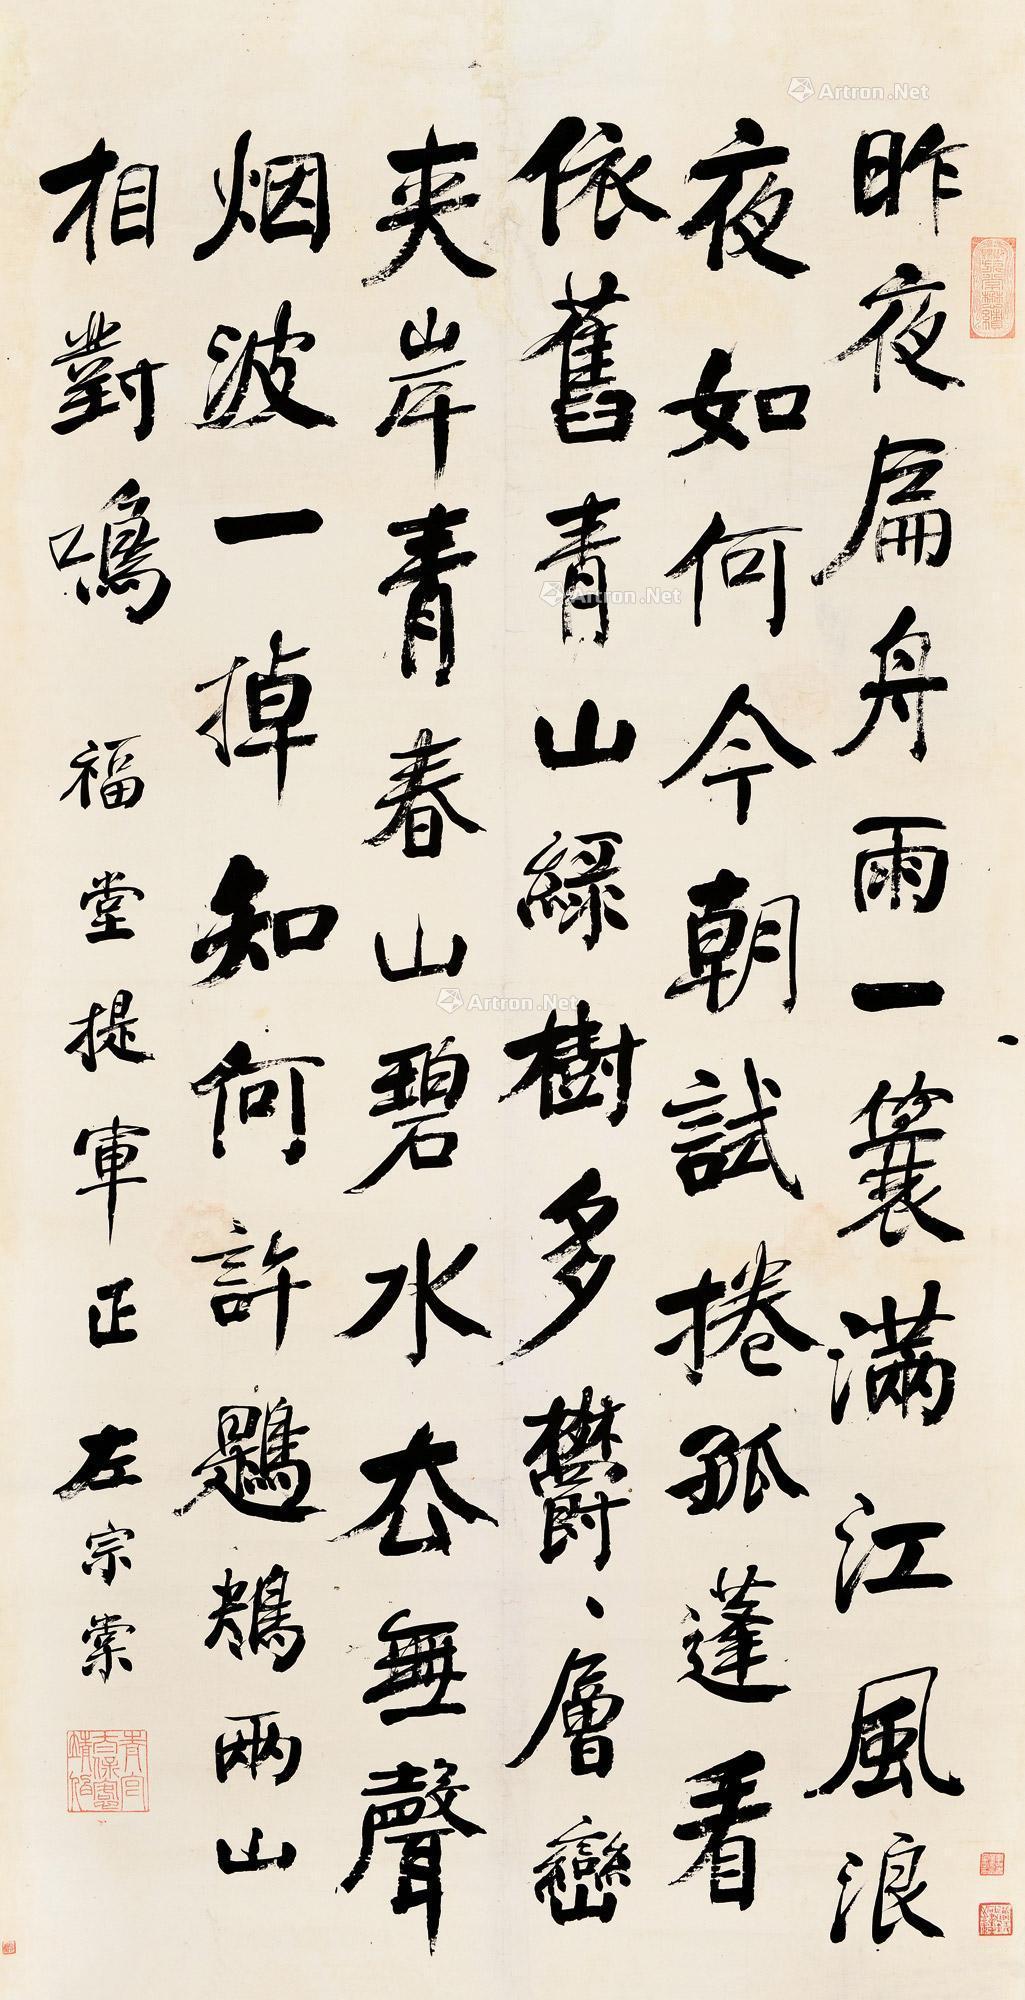 昨夜扁舟雨一簑滿江風浪
夜如何今朝試捲孤蓬看
依舊青山綠樹多鬱、層巒
夾岸青春山碧水去無聲
烟波一掉知何許鶗鴂兩山
相對鳴
福堂提軍正 左宗棠
Artron.Net
Artron.Net
Artron.Net